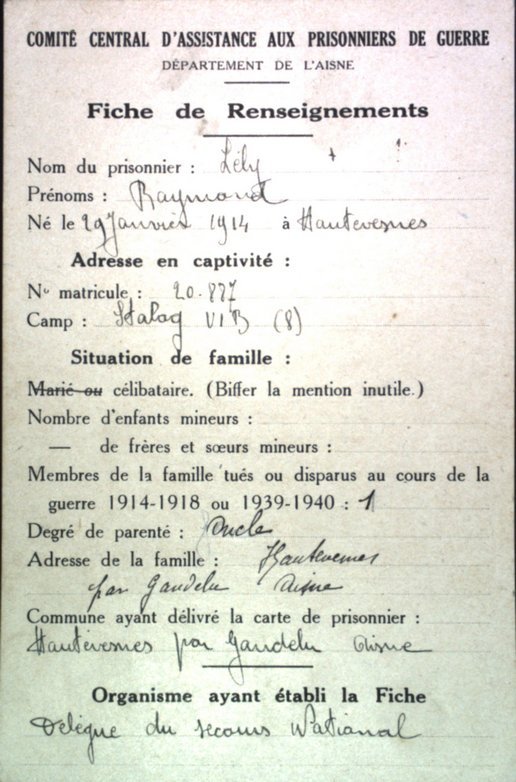 COMITÉ CENTRAL D'ASSISTANCE AUX PRISONNIERS DE GUERRE
DÉPARTEMENT DE L'AISNE
Fiche de Renseignements
Nom du prisonnier : Lély
Prénoms : Raymond
Né le 29 Janvier 1914 à Hautevesnes
Adresse en captivité :
No matricule : 20.887
Camp : Stalag VI B (8)
Situation de famille :
Marié ou célibataire. (Biffer la mention inutile.)
Nombre d'enfants mineurs :
— de frères et sœurs mineurs :
Membres de la famille tués ou disparus au cours de la
guerre 1914-1918 ou 1939-1940 : 1
Degré de parenté : Oncle
Adresse de la famille : Hautevesnes
par Gandelu Aisne
Commune ayant délivré la carte de prisonnier :
Hautevesnes par Gandelu Aisne
Organisme ayant établi la Fiche
Délégué du secours National